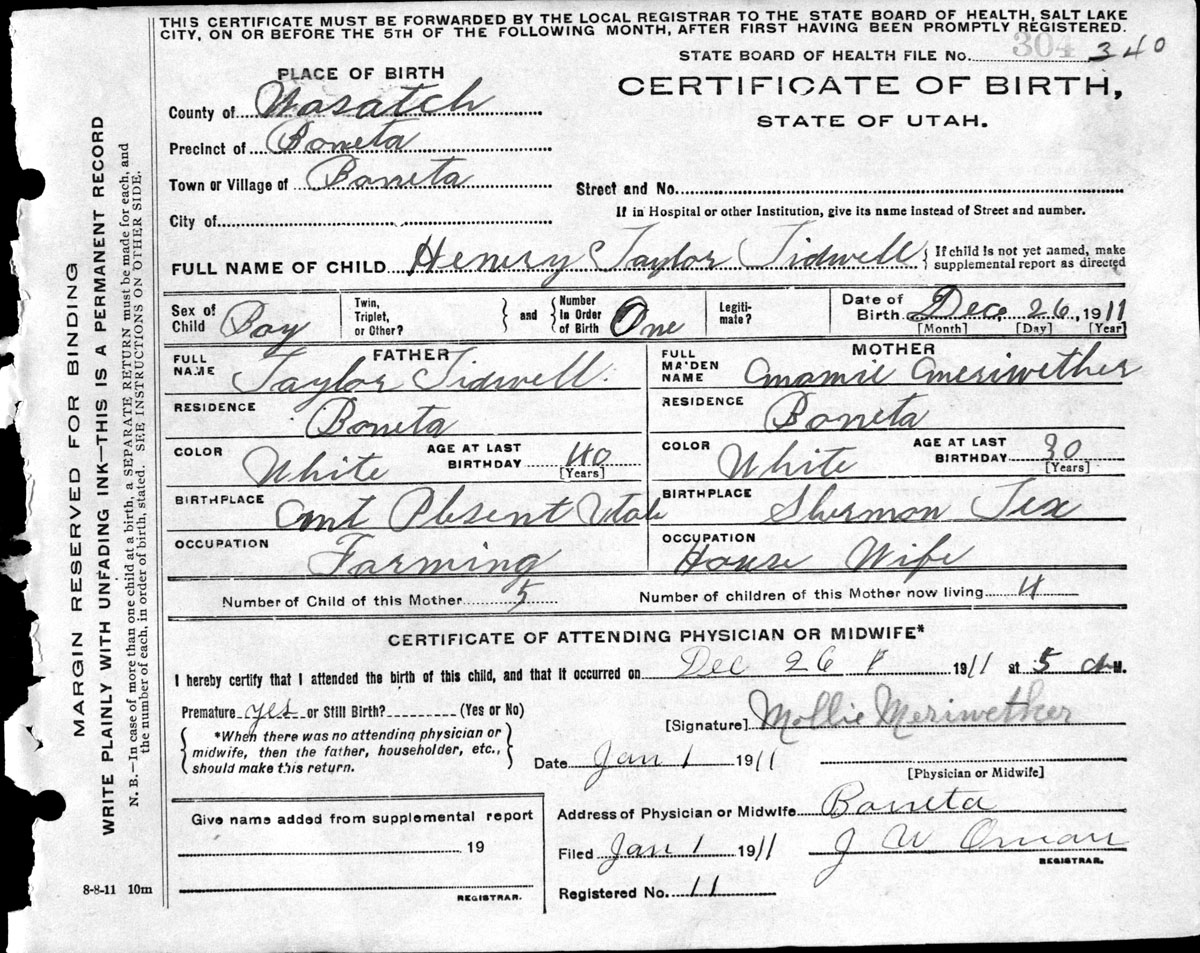 THIS CERTIFICATE MUST BE FORWARDED BY THE LOCAL REGISTRAR TO THE STATE BOARD OF HEALTH, SALT LAKE
CITY, ON OR BEFORE THE 5TH OF THE FOLLOWING MONTH, AFTER FIRST HAVING BEEN PROMPTLY REGISTERED.
STATE BOARD OF HEALTH FILE No. 304 340
PLACE OF BIRTH
CERTIFICATE OF BIRTH,
STATE OF UTAH.
County of Wasatch
Precinct of Boneta
Town or Village of Boneta
Street and No.
City of
If in Hospital or other Institution, give its name instead of Street and number.
FULL NAME OF CHILD Henry Taylor Tidwell { If child is not yet named, make
supplemental report as directed
Sex of Child Boy
Twin, Triplet, or Other? } and { Number In Order of Birth One
Legitimate?
Date of Birth Dec, 26, 1911
[Month] [Day] [Year]
FATHER
FULL NAME Taylor Tidwell
MOTHER
FULL MAIDEN NAME Mamie Meriwether
RESIDENCE Boneta
RESIDENCE Boneta
COLOR White AGE AT LAST BIRTHDAY 40 [Years]
COLOR White AGE AT LAST BIRTHDAY 30 [Years]
BIRTHPLACE Mt Plesent Utah
BIRTHPLACE Shermon Tex
OCCUPATION Farming
OCCUPATION House Wife
Number of Child of this Mother 5 Number of children of this Mother now living 4
CERTIFICATE OF ATTENDING PHYSICIAN OR MIDWIFE*
I hereby certify that I attended the birth of this child, and that it occurred on Dec 26 1911 at 5 A M.
Premature yes or Still Birth? (Yes or No)
[Signature] Mollie Meriwether
{ *When there was no attending physician or
midwife, then the father, householder, etc.,
should make this return. }
Date Jan 1 1911
[Physician or Midwife]
Give name added from supplemental report
19
REGISTRAR.
Address of Physician or Midwife Boneta
Filed Jan 1 1911 J W Oman
REGISTRAR.
Registered No. 11
8-8-11 10m
MARGIN RESERVED FOR BINDING
WRITE PLAINLY WITH UNFADING INK—THIS IS A PERMANENT RECORD
N. B.—In case of more than one child at a birth, a SEPARATE RETURN must be made for each, and
the number of each, in order of birth, stated. SEE INSTRUCTIONS ON OTHER SIDE.